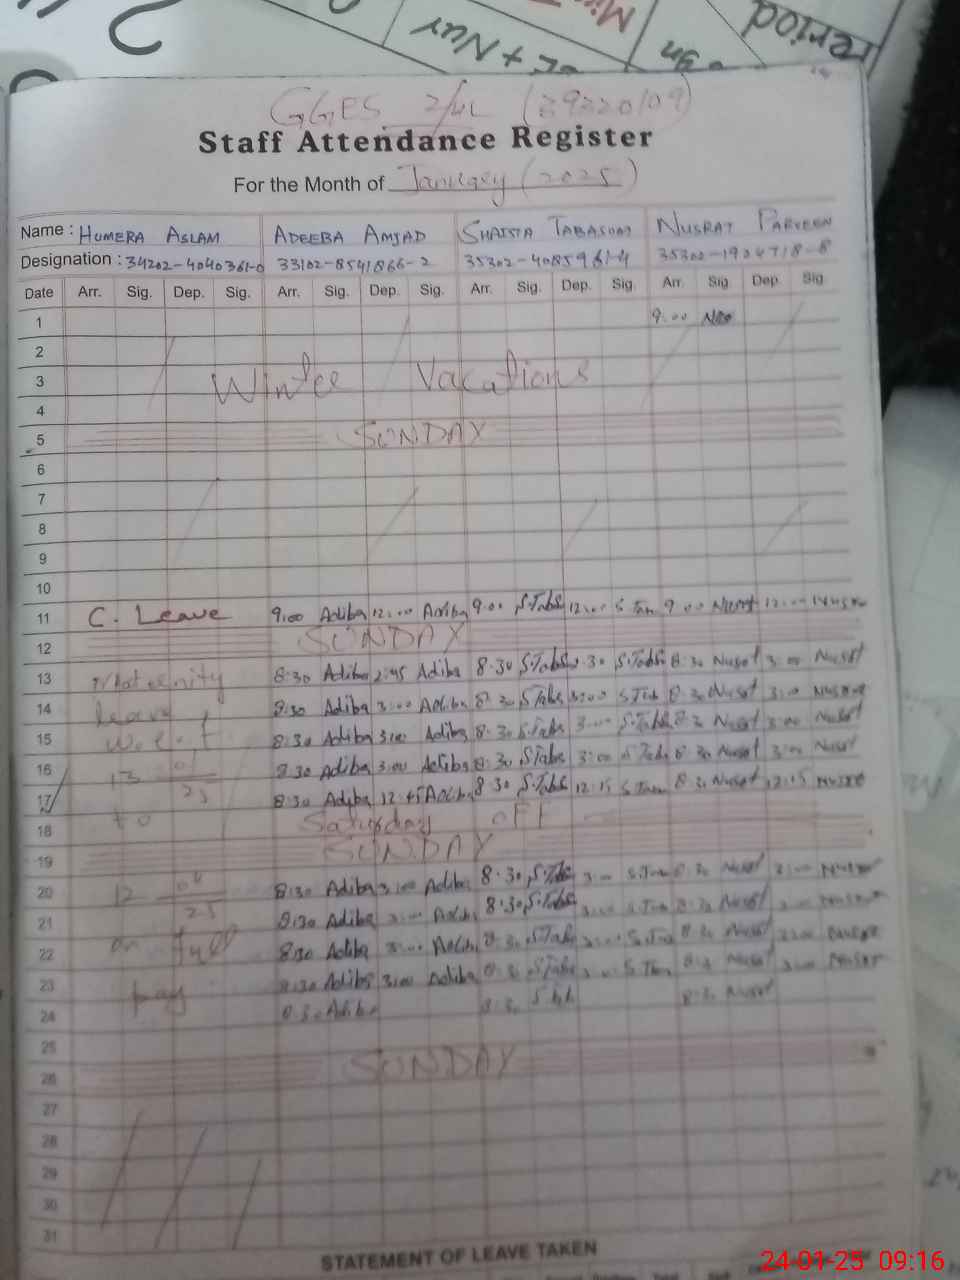 GGES 2/4L (39320109)
Staff Attendance Register
For the Month of January (2025)
Name : HUMERA ASLAM ADEEBA AMJAD SHAISTA TABASUM NUSRAT PARVEEN
Designation : 34202-4040361-0 33102-8541866-2 35302-4085961-4 35302-1904718-8
Date Arr. Sig. Dep. Sig. Arr. Sig. Dep. Sig. Arr. Sig. Dep. Sig. Arr. Sig. Dep. Sig.
1 9:00
2
3 Winter Vacations
4
5 SUNDAY
6
7
8
9
10
11 C. Leave 9:00 Adiba 12:00 Adiba 9:00 S.Tabs 12:00 S Tam 9:00 Nusrt 12:00 Nusrt
12 SUNDAY
13 Maternity 8:30 Adiba 2:45 Adiba 8:30 S.Tabs 2:30 S.Tabs 8:30 Nusrt 3:00 Nusrt
14 leave 8:30 Adiba 3:00 Adiba 8:30 S.Tabs 3:00 S Tab 8:30 Nusrt 3:00 Nusrt
15 w.e.f 8:30 Adiba 3:00 Adiba 8:30 S.Tabs 3:00 S.Tabs 8:30 Nusrt 3:00 Nusrt
16 13 01 8:30 Adiba 3:00 Adiba 8:30 STabs 3:00 S Tabs 8:30 Nusrt 3:00 Nusrt
17 25 8:30 Adiba 12:45 Adiba 8:30 S.Tabs 12:15 S Tam 8:30 Nusrt 12:15 Nusrt
18 to Saturday OFF
19 SUNDAY
20 12 04 8:30 Adiba 3:00 Adiba 8:30 S.Tabs 3:00 S.Tam 8:30 Nusrt 3:00 Nusrt
21 25 8:30 Adiba 3:00 Adiba 8:30 S.Tabs 3:00 S Tam 8:30 Nusrt 3:00 Nusrt
22 on full 8:30 Adiba 3:00 Adiba 8:30 S.Tabs 3:00 S.Tam 8:30 Nusrt 3:00 Nusrt
23 pay 8:30 Adiba 3:00 Adiba 8:30 STabs 3:00 S Tam 8:30 Nusrt 3:00 Nusrt
24 8:30 Adiba 8:30 8:30 Nusrt
25
26 SUNDAY
27
28
29
30
31
STATEMENT OF LEAVE TAKEN
24-01-25 09:16